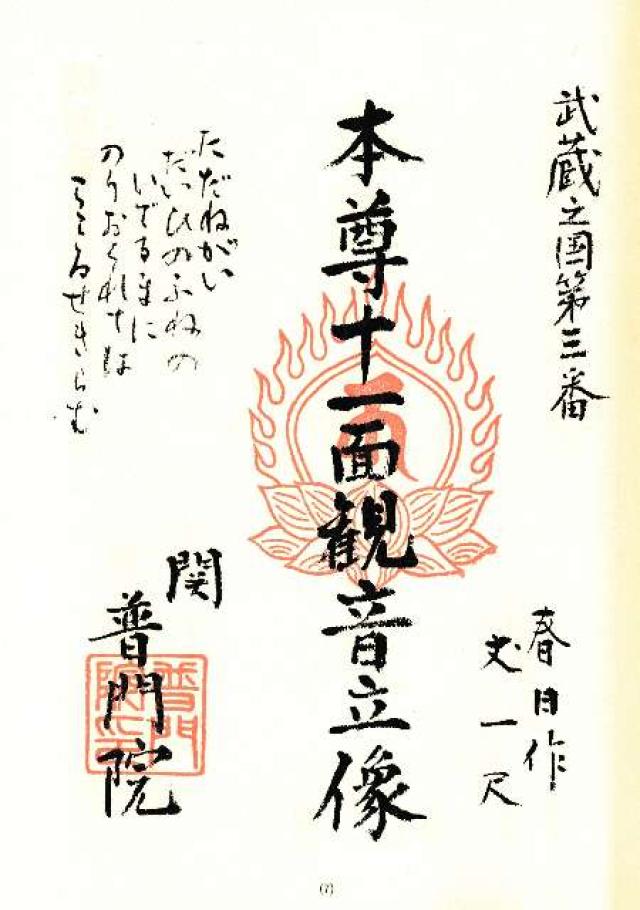 武蔵之国第三番
春日作
丈一尺
本尊十一面観音立像
ただねがい
だいひのふねの
いでるまに
のりおくれては
こころせきらむ
関
普門院
普門院印
(7)